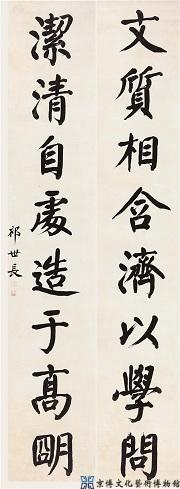 文質相含濟以學問
潔清自處造于高明
祁世長
京博文化藝術博物館